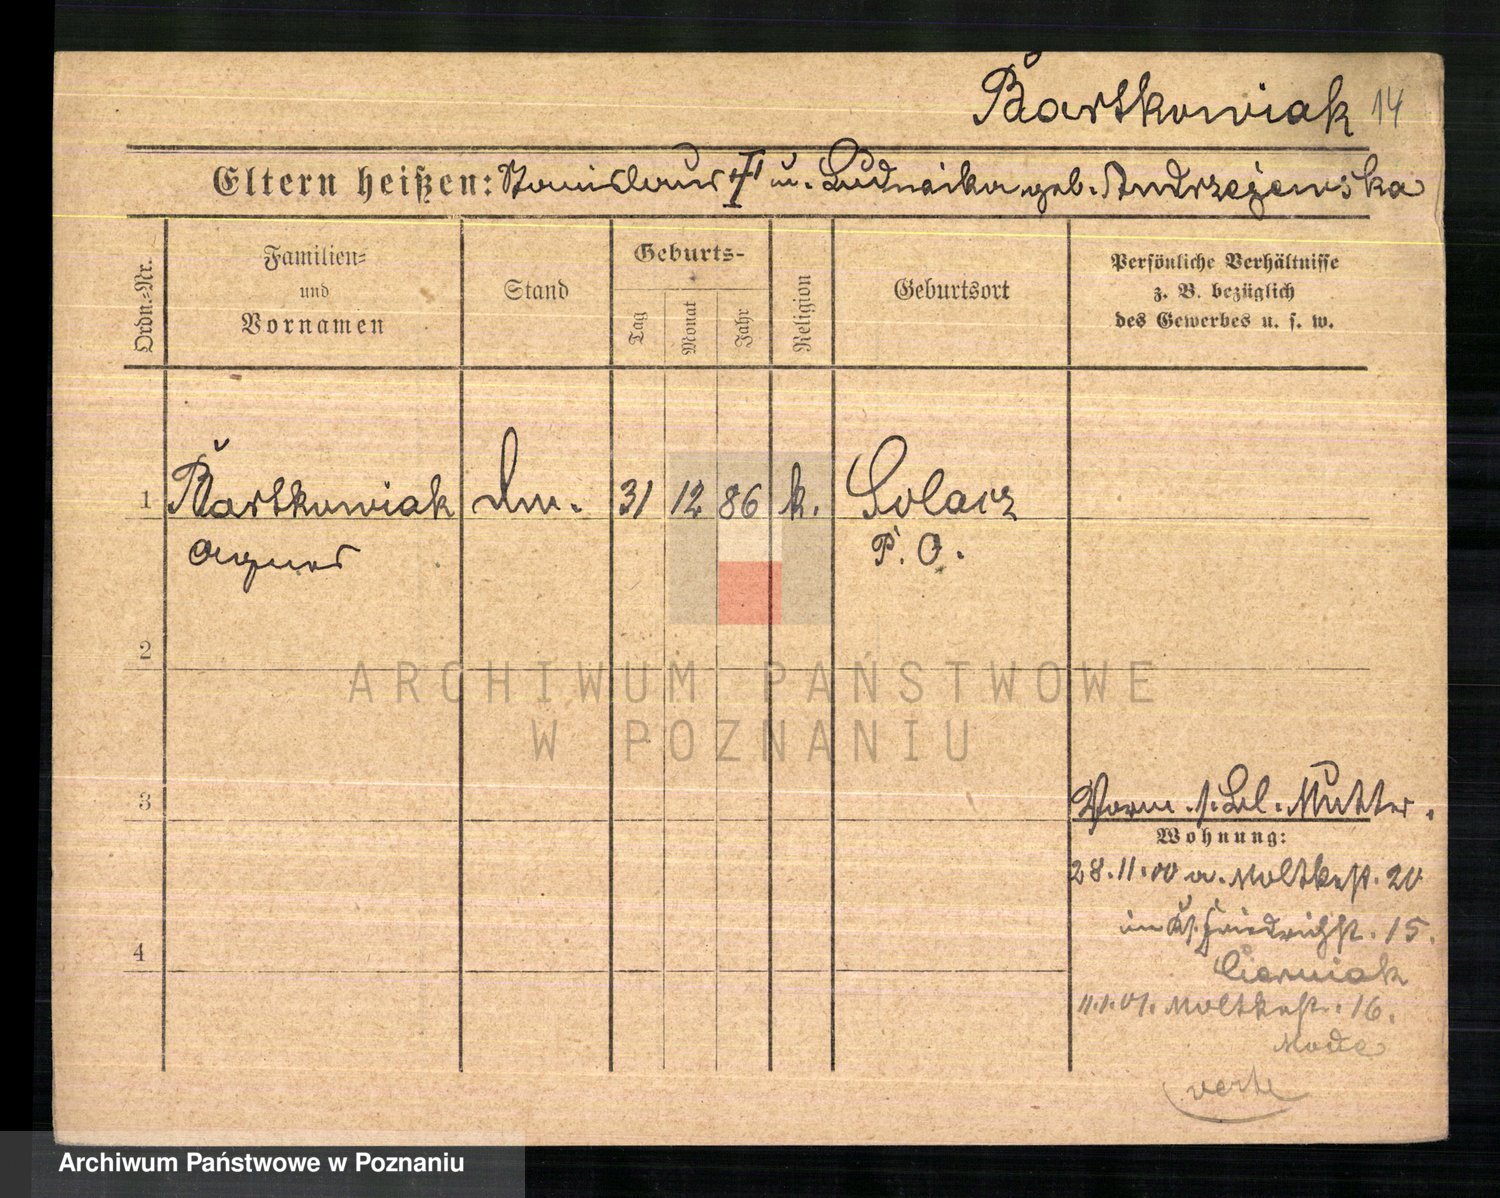 Bartkowiak 14
Eltern heißen: Stanislaus † u. Ludwika geb. Andrzejewska
Ordn.-Nr.
Familien-
und
Vornamen
Stand
Geburts-
Tag
Monat
Jahr
Religion
Geburtsort
Persönliche Verhältnisse
z. B. bezüglich
des Gewerbes u. s. w.
1 Bartkowiak 31 12 86 k. Solacz
Agnes P. O.
2
ARCHIWUM PAŃSTWOWE
W POZNANIU
3 Vorm. s. Bl. Mutter.
Wohnung:
28.11.00 a. Moltkest. 20
4 Friedrichst. 15.
11.1.01. Moltkest. 16.
verte
Archiwum Państwowe w Poznaniu